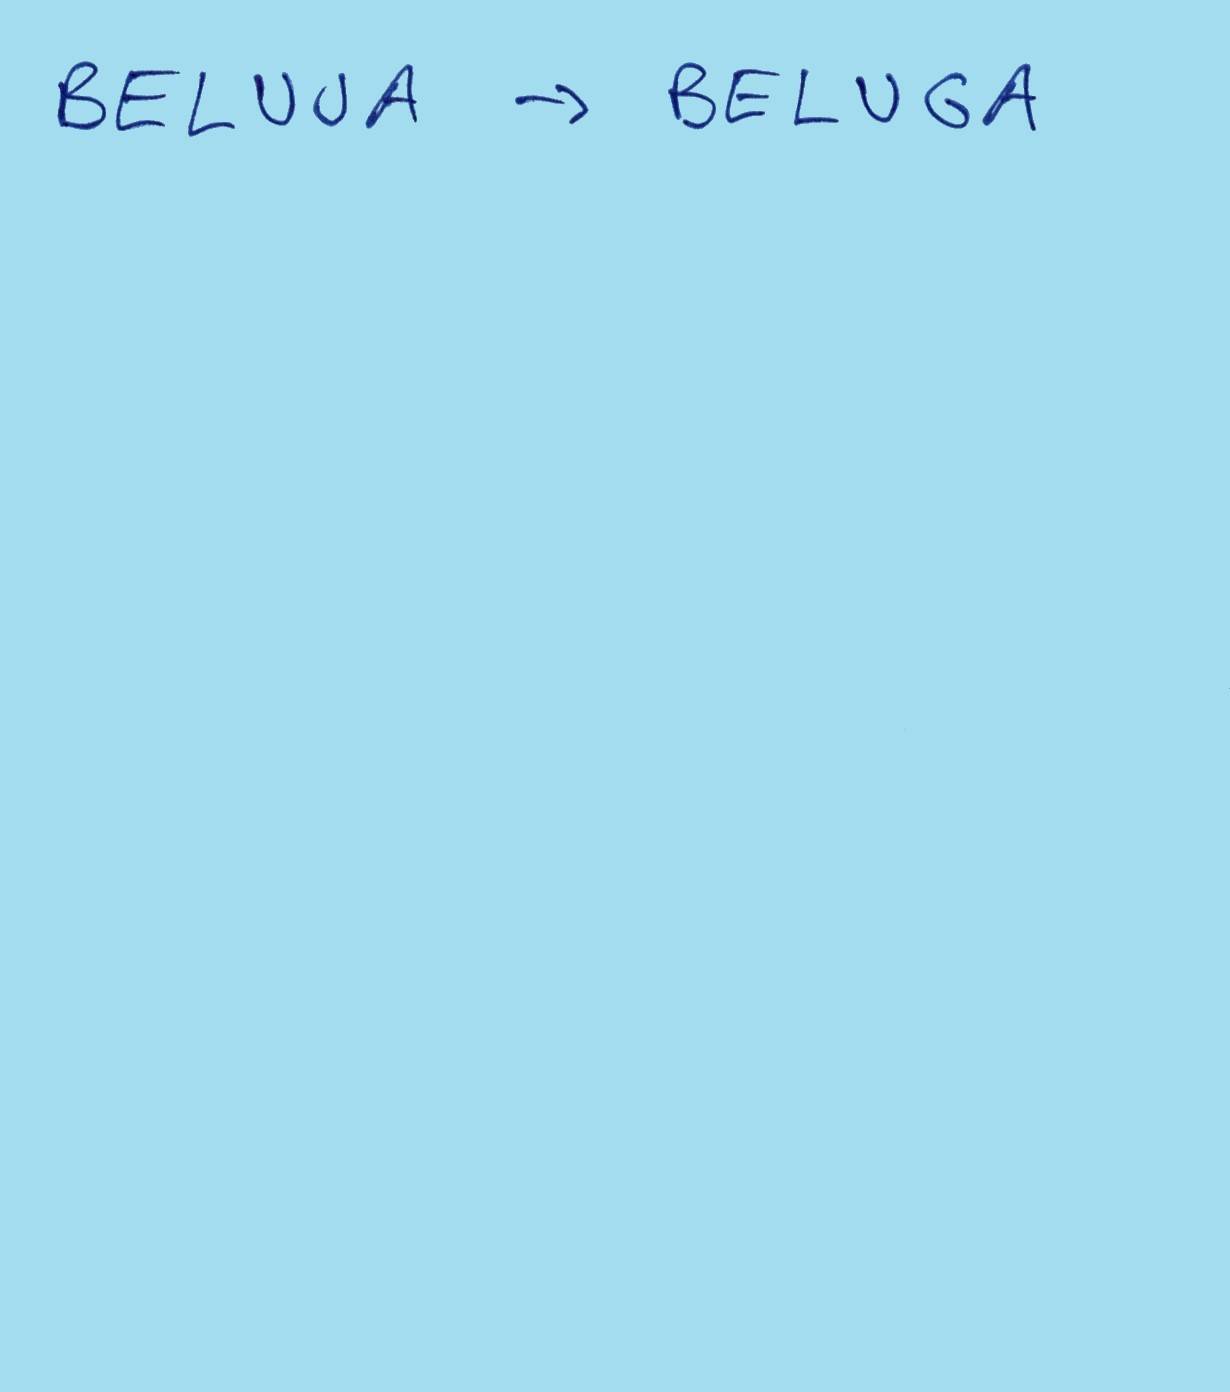 BELUJA → BELUGA